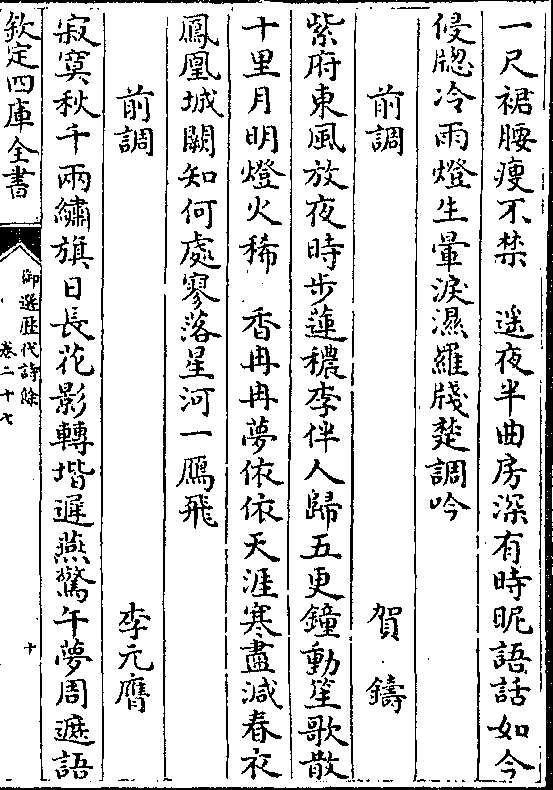 一尺裙腰瘦不禁　遥夜半曲房深有時昵語話如今
侵牕冷雨燈生暈淚濕羅牋楚調吟
前調　賀鑄
紫府東風放夜時步蓮穠李伴人歸五更鐘動笙歌散
十里月明燈火稀　香冉冉夢依依天涯寒盡減春衣
鳳凰城闕知何處寥落星河一鴈飛
前調　李元膺
寂寞秋千兩繡旗日長花影轉堦遲燕驚午夢周遮語
欽定四庫全書
御選歴代詩餘
卷二十七
十